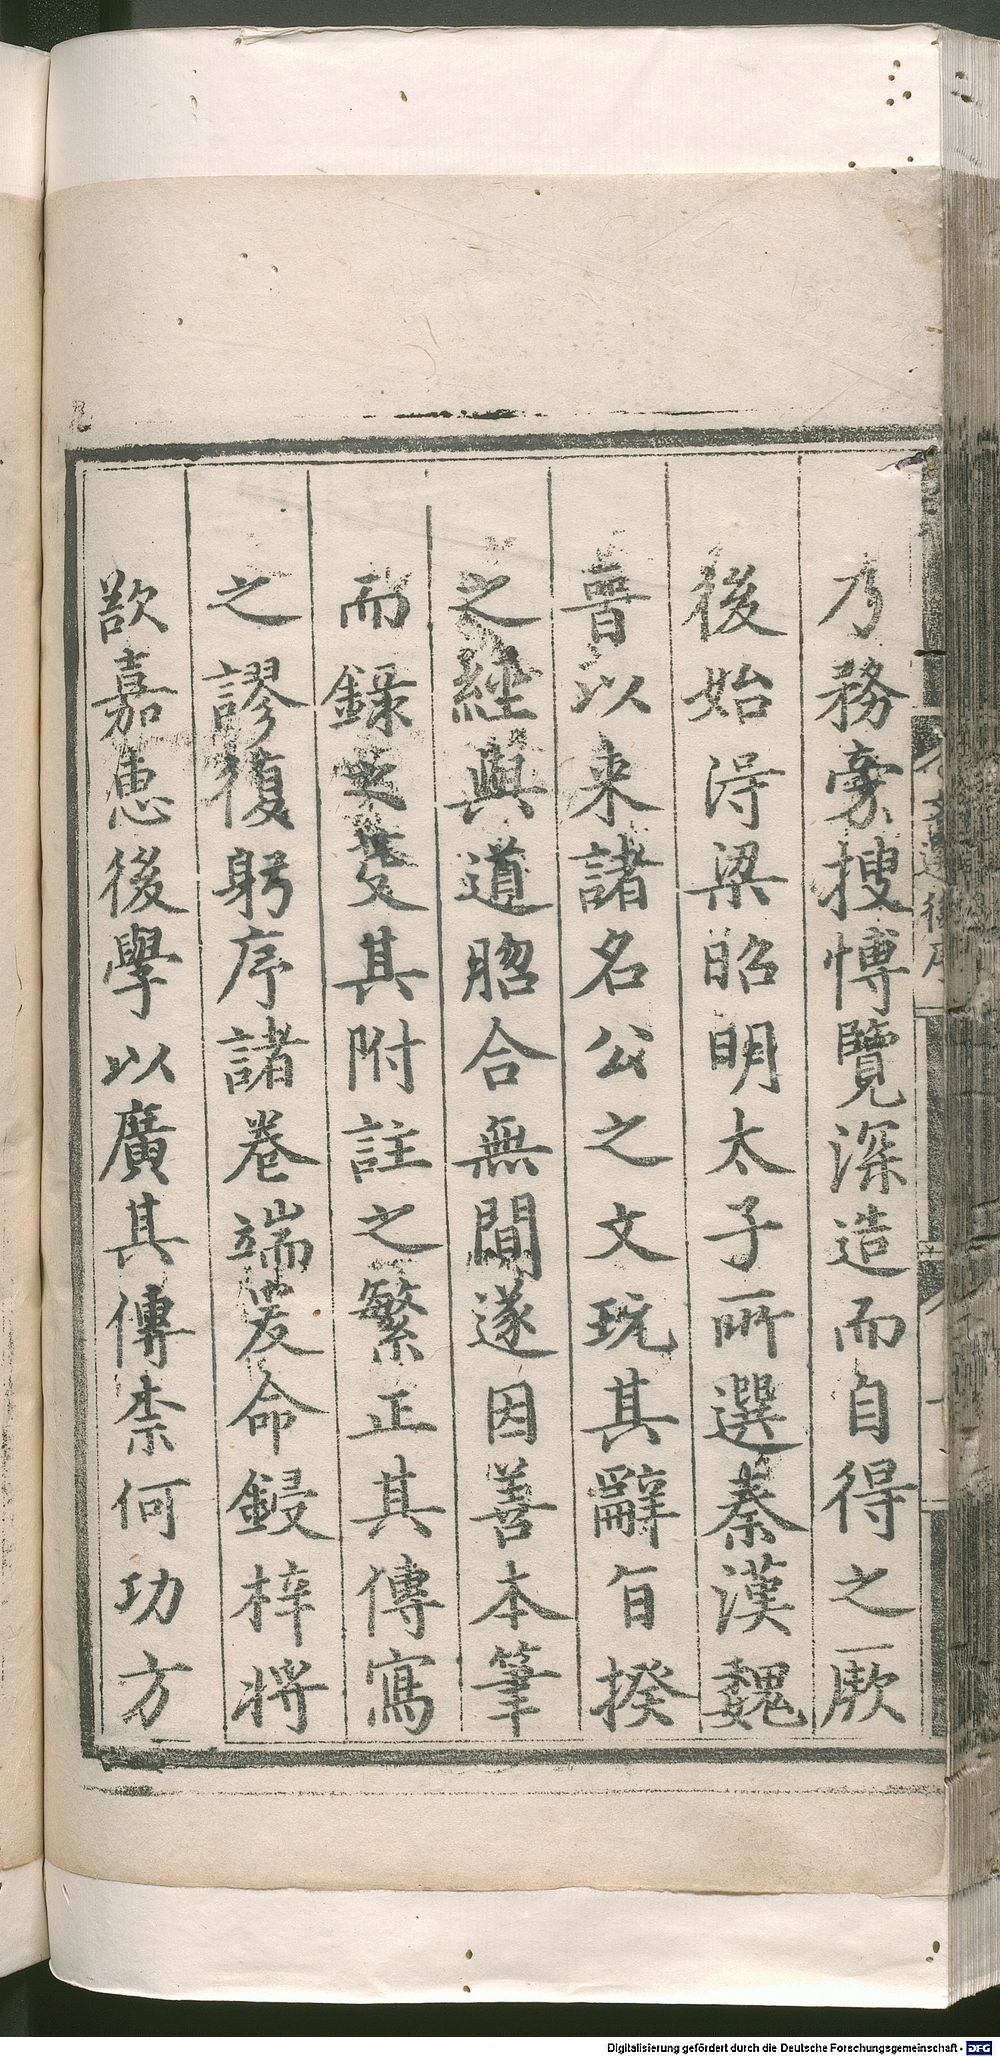 乃務旁搜博覽深造而自得之厥
後始淂梁昭明太子所選秦漢魏
晉以来諸名公之文玩其辭旨揆
之經與道脗合無間遂因善本筆
而錄之芟其附註之繁正其傳寫
之謬復躬序諸卷端爰命鋟梓將
歆嘉惠後學以廣其傳柰何功方
Digitalisierung gefördert durch die Deutsche Forschungsgemeinschaft - DFG